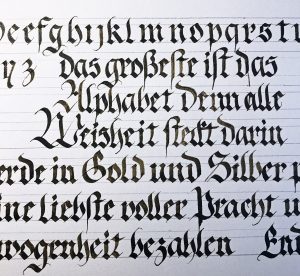 efghijklmnopqrstu
y z das großeste ist das
Alphabet denn alle
Weisheit steckt darin
erde in Gold und Silber p
ine liebste voller Pracht u
wogenheit bezahlen End